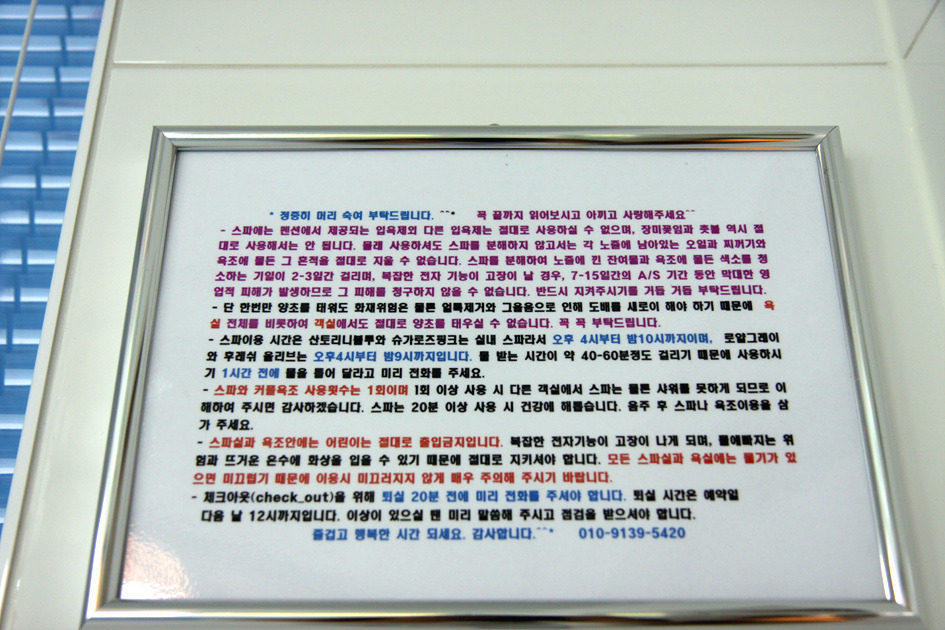 * 정중히 머리 숙여 부탁드립니다. ^^* 꼭 끝까지 읽어보시고 아끼고 사랑해주세요^^
- 스파에는 펜션에서 제공되는 입욕제외 다른 입욕제는 절대로 사용하실 수 없으며, 장미꽃잎과 촛불 역시 절
대로 사용해서는 안 됩니다. 몰래 사용하셔도 스파를 분해하지 않고서는 각 노즐에 남아있는 오일과 찌꺼기와
욕조에 물든 그 흔적을 절대로 지울 수 없습니다. 스파를 분해하여 노즐에 낀 잔여물과 욕조에 물든 색소를 청
소하는 기일이 2-3일간 걸리며, 복잡한 전자 기능이 고장이 날 경우, 7-15일간의 A/S 기간 동안 막대한 영
업적 피해가 발생하므로 그 피해를 청구하지 않을 수 없습니다. 반드시 지켜주시기를 거듭 거듭 부탁드립니다.
- 단 한번만 양초를 태워도 화재위험은 물론 얼룩제거와 그을음으로 인해 도배를 새로이 해야 하기 때문에 욕
실 전체를 비롯하여 객실에서도 절대로 양초를 태우실 수 없습니다. 꼭 꼭 부탁드립니다.
- 스파이용 시간은 산토리니블루와 슈가로즈핑크는 실내 스파라서 오후 4시부터 밤10시까지이며, 로얄그레이
와 후레쉬 올리브는 오후4시부터 밤9시까지입니다. 물 받는 시간이 약 40-60분정도 걸리기 때문에 사용하시
기 1시간 전에 물을 틀어 달라고 미리 전화를 주세요.
- 스파와 커플욕조 사용횟수는 1회이며 1회 이상 사용 시 다른 객실에서 스파는 물론 샤워를 못하게 되므로 이
해하여 주시면 감사하겠습니다. 스파는 20분 이상 사용 시 건강에 해롭습니다. 음주 후 스파나 욕조이용을 삼
가 주세요.
- 스파실과 욕조안에는 어린이는 절대로 출입금지입니다. 복잡한 전자기능이 고장이 나게 되며, 물에빠지는 위
험과 뜨거운 온수에 화상을 입을 수 있기 때문에 절대로 지키셔야 합니다. 모든 스파실과 욕실에는 물기가 있
으면 미끄럽기 때문에 이용시 미끄러지지 않게 매우 주의해 주시기 바랍니다.
- 체크아웃(check_out)을 위해 퇴실 20분 전에 미리 전화를 주셔야 합니다. 퇴실 시간은 예약일
다음 날 12시까지입니다. 이상이 있으실 땐 미리 말씀해 주시고 점검을 받으셔야 합니다.
즐겁고 행복한 시간 되세요. 감사합니다.^^* 010-9139-5420